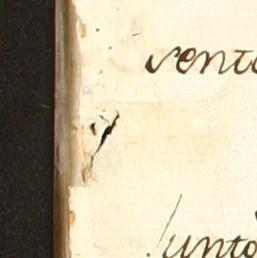 vento
junto